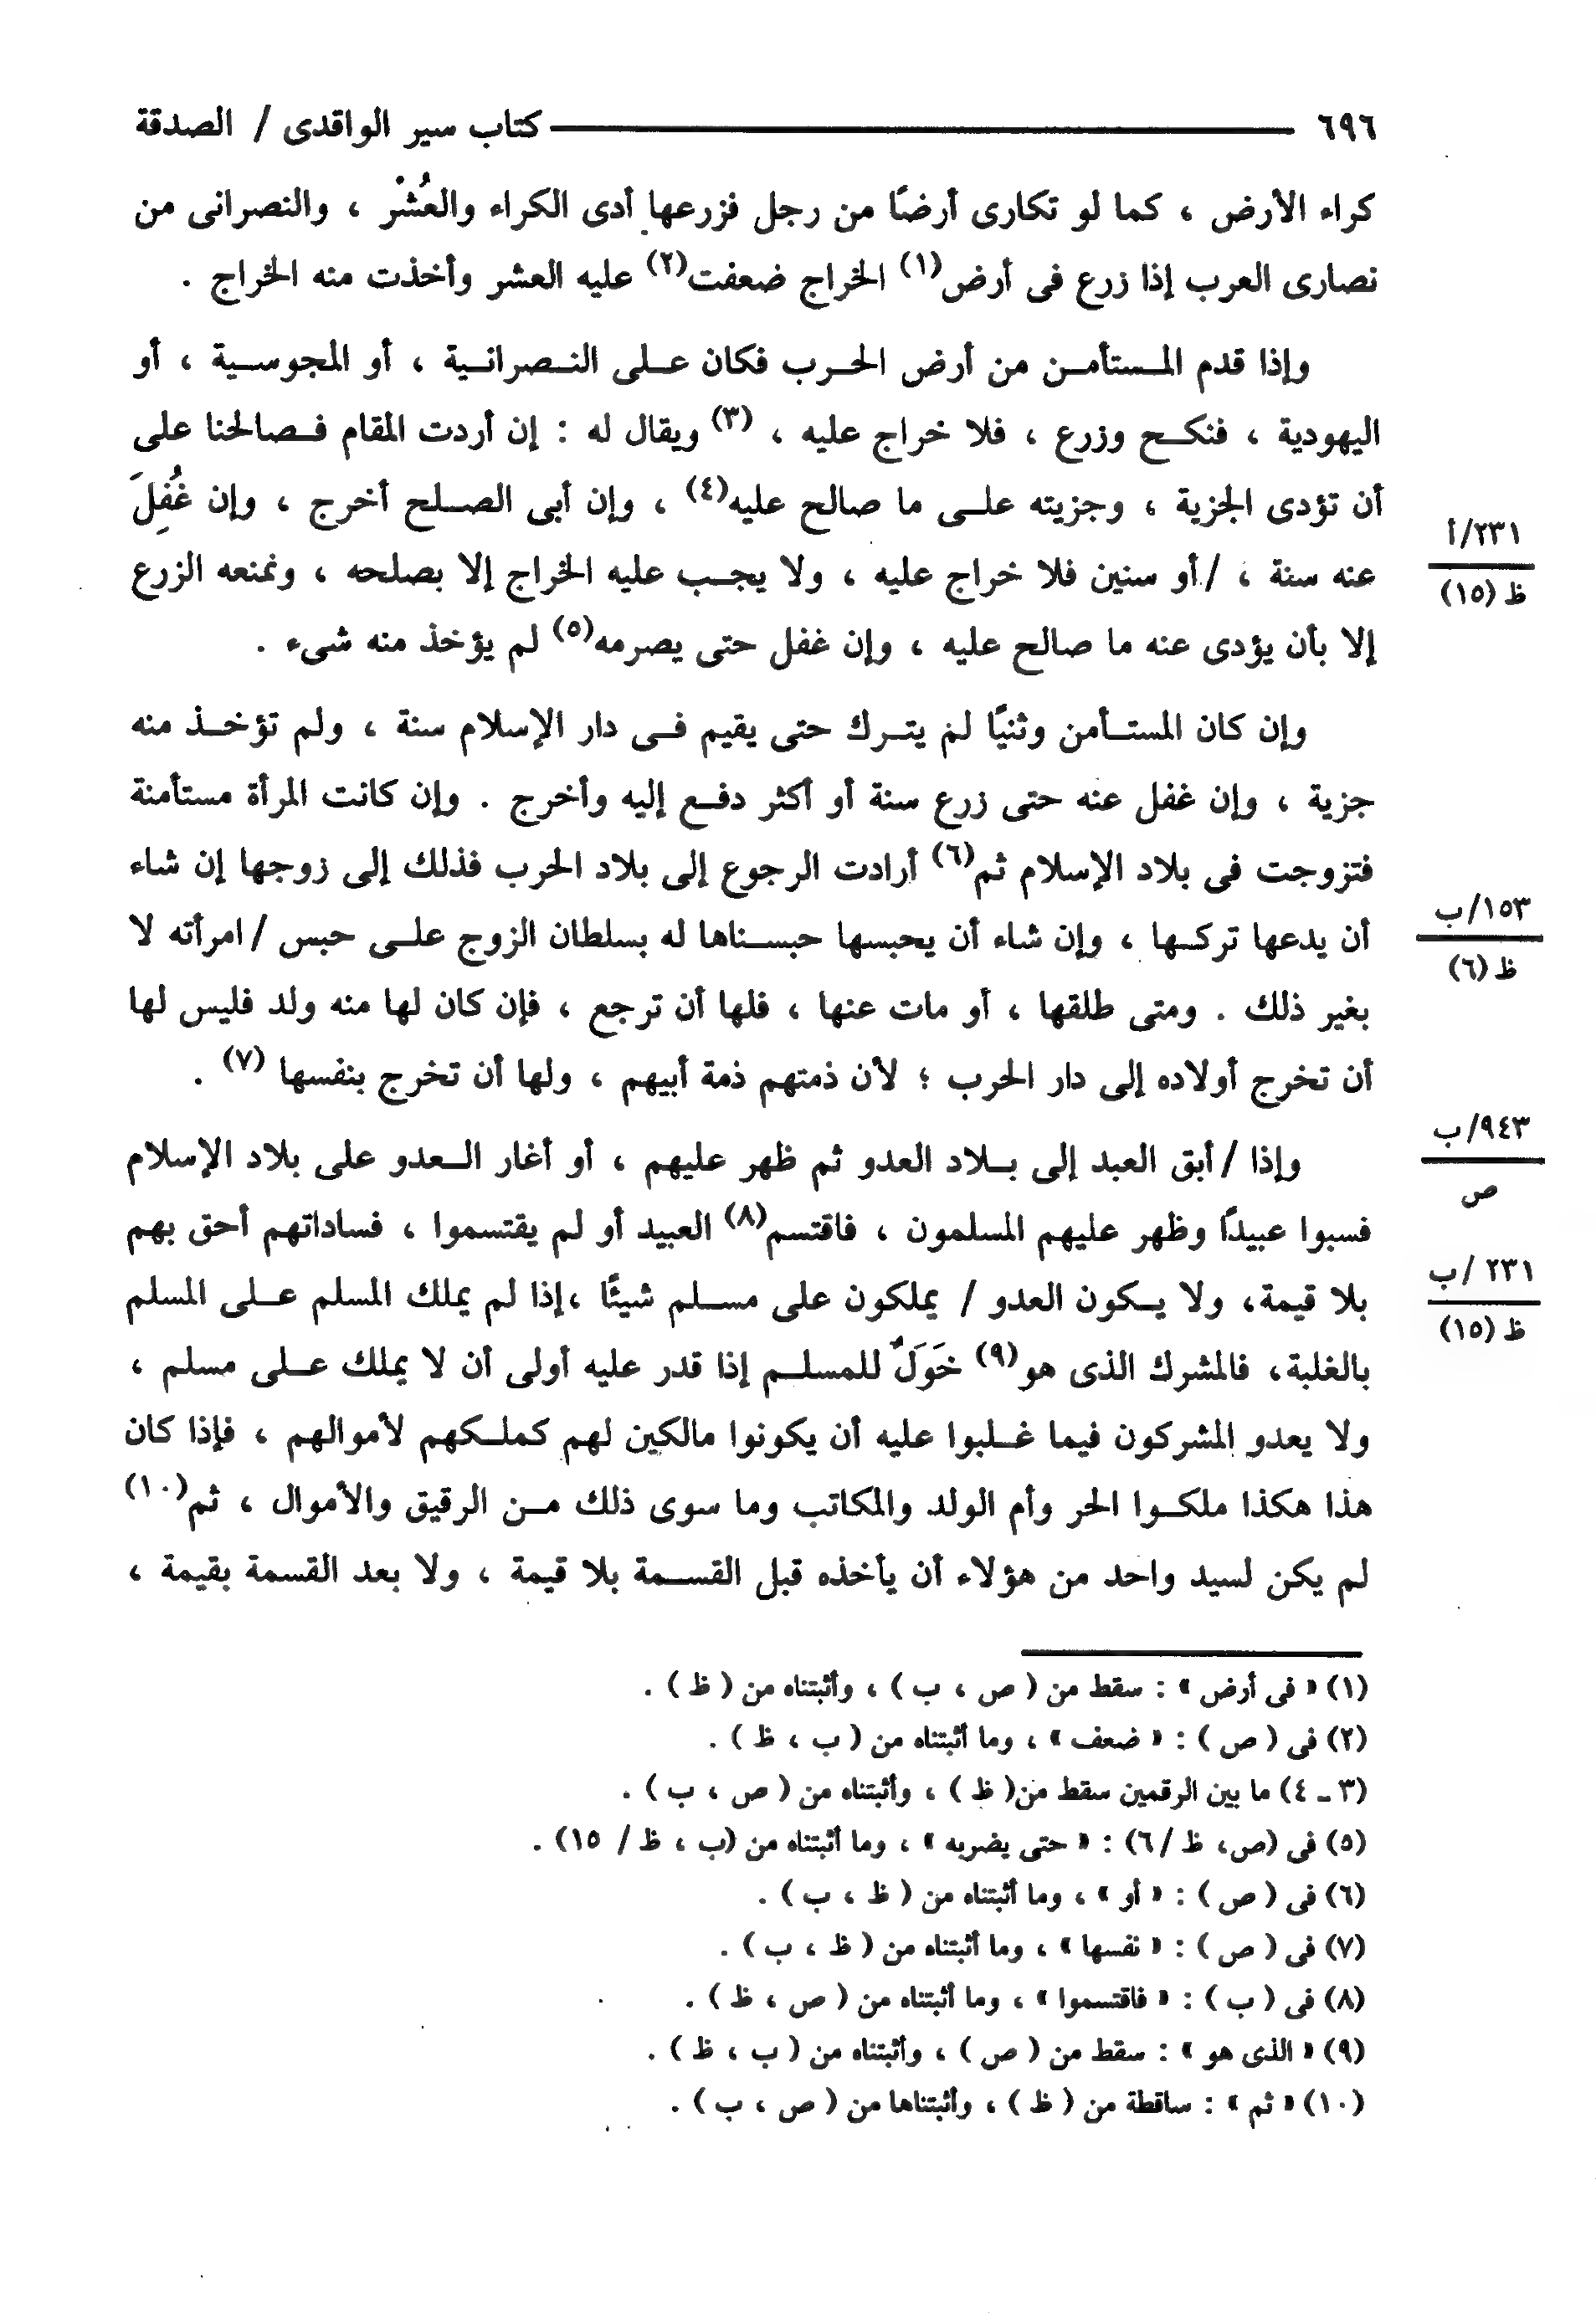 ٦٩٦ ــــــــــ كتاب سير الواقدى / الصدقة
كراء الأرض ، كما لو تكارى أرضًا من رجل فزرعها أدى الكراء والعُشْر ، والنصرانى من
نصارى العرب إذا زرع فى أرض(١) الخراج ضعفت(٢) عليه العشر وأخذت منه الخراج .
وإذا قدم المستأمن من أرض الحرب فكان على النصرانية ، أو المجوسية ، أو
اليهودية ، فنكح وزرع ، فلا خراج عليه ، (٣) ويقال له : إن أردت المقام فصالحنا على
أن تؤدى الجزية ، وجزيته على ما صالح عليه(٤) ، وإن أبى الصلح أخرج ، وإن غُفِلَ
٢٣١/أ
ظ (١٥)
عنه سنة ، /أو سنين فلا خراج عليه ، ولا يجب عليه الخراج إلا بصلحه ، ونمنعه الزرع
إلا بأن يؤدى عنه ما صالح عليه ، وإن غفل حتى يصرمه(٥) لم يؤخذ منه شىء .
وإن كان المستأمن وثنيًا لم يترك حتى يقيم فى دار الإسلام سنة ، ولم تؤخذ منه
جزية ، وإن غفل عنه حتى زرع سنة أو أكثر دفع إليه وأخرج . وإن كانت المرأة مستأمنة
فتزوجت فى بلاد الإسلام ثم(٦) أرادت الرجوع إلى بلاد الحرب فذلك إلى زوجها إن شاء
١٥٣/ب
ظ (٦)
أن يدعها تركها ، وإن شاء أن يحبسها حبسناها له بسلطان الزوج على حبس /امرأته لا
بغير ذلك . ومتى طلقها ، أو مات عنها ، فلها أن ترجع ، فإن كان لها منه ولد فليس لها
أن تخرج أولاده إلى دار الحرب ؛ لأن ذمتهم ذمة أبيهم ، ولها أن تخرج بنفسها (٧) .
٩٤٣/ب
ص
وإذا /أبق العبد إلى بلاد العدو ثم ظهر عليهم ، أو أغار العدو على بلاد الإسلام
فسبوا عبيدًا وظهر عليهم المسلمون ، فاقتسم(٨) العبيد أو لم يقتسموا ، فساداتهم أحق بهم
٢٣١ /ب
ظ (١٥)
بلا قيمة، ولا يكون العدو / يملكون على مسلم شيئًا ،إذا لم يملك المسلم على المسلم
بالغلبة، فالمشرك الذى هو(٩) خَوَلٌ للمسلم إذا قدر عليه أولى أن لا يملك على مسلم ،
ولا يعدو المشركون فيما غلبوا عليه أن يكونوا مالكين لهم كملكهم لأموالهم ، فإذا كان
هذا هكذا ملكوا الحر وأم الولد والمكاتب وما سوى ذلك من الرقيق والأموال ، ثم(١٠)
لم يكن لسيد واحد من هؤلاء أن يأخذه قبل القسمة بلا قيمة ، ولا بعد القسمة بقيمة ،
(١) « فى أرض » : سقط من ( ص ، ب ) ، وأثبتناه من ( ظ ) .
(٢) فى ( ص ) : « ضعف » ، وما أثبتناه من ( ب ، ظ ) .
(٣ ـ ٤) ما بين الرقمين سقط من( ظ ) ، وأثبتناه من ( ص ، ب ) .
(٥) فى (ص، ظ /٦) : « حتى يضربه » ، وما أثبتناه من (ب ، ظ / ١٥) .
(٦) فى ( ص ) : « أو » ، وما أثبتناه من ( ظ ، ب ) .
(٧) فى ( ص ) : « نفسها » ، وما أثبتناه من ( ظ ، ب ) .
(٨) فى ( ب ) : « فاقتسموا » ، وما أثبتناه من ( ص ، ظ ) .
(٩) « الذى هو » : سقط من ( ص ) ، وأثبتناه من ( ب ، ظ ) .
(١٠) « ثم » : ساقطة من ( ظ ) ، وأثبتناها من ( ص ، ب ) .